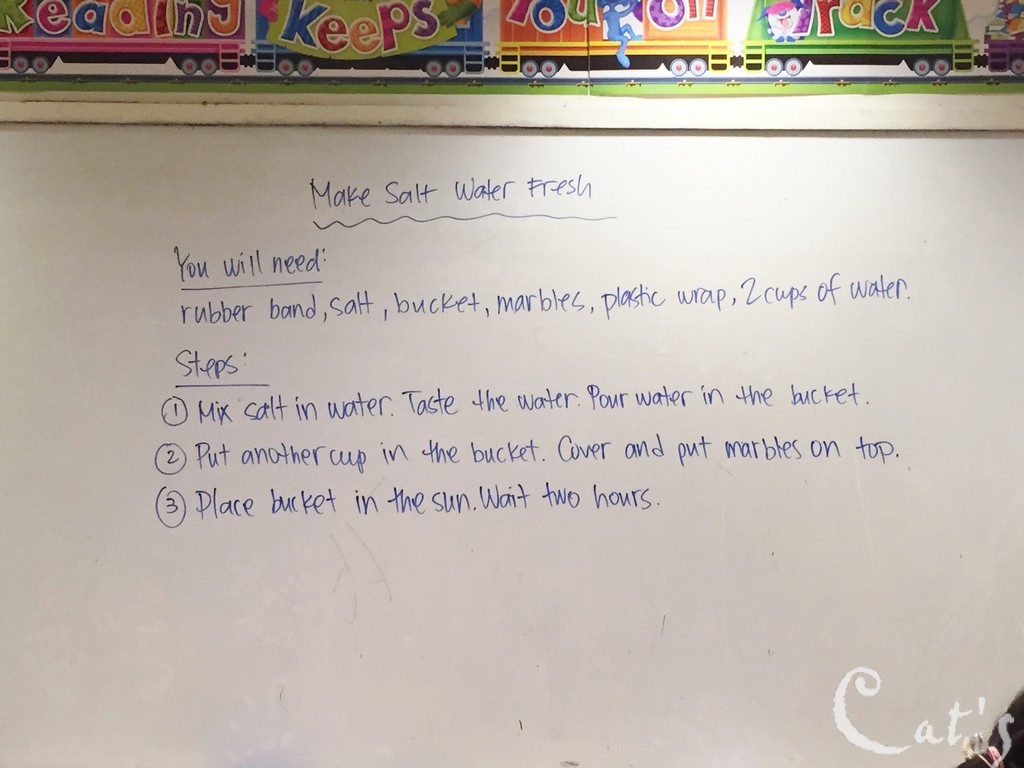 Reading Keeps You on Track
Make Salt Water Fresh
You will need:
rubber band, salt, bucket, marbles, plastic wrap, 2 cups of water.
Steps:
① Mix salt in water. Taste the water. Pour water in the bucket.
② Put another cup in the bucket. Cover and put marbles on top.
③ Place bucket in the sun. Wait two hours.
Cat's